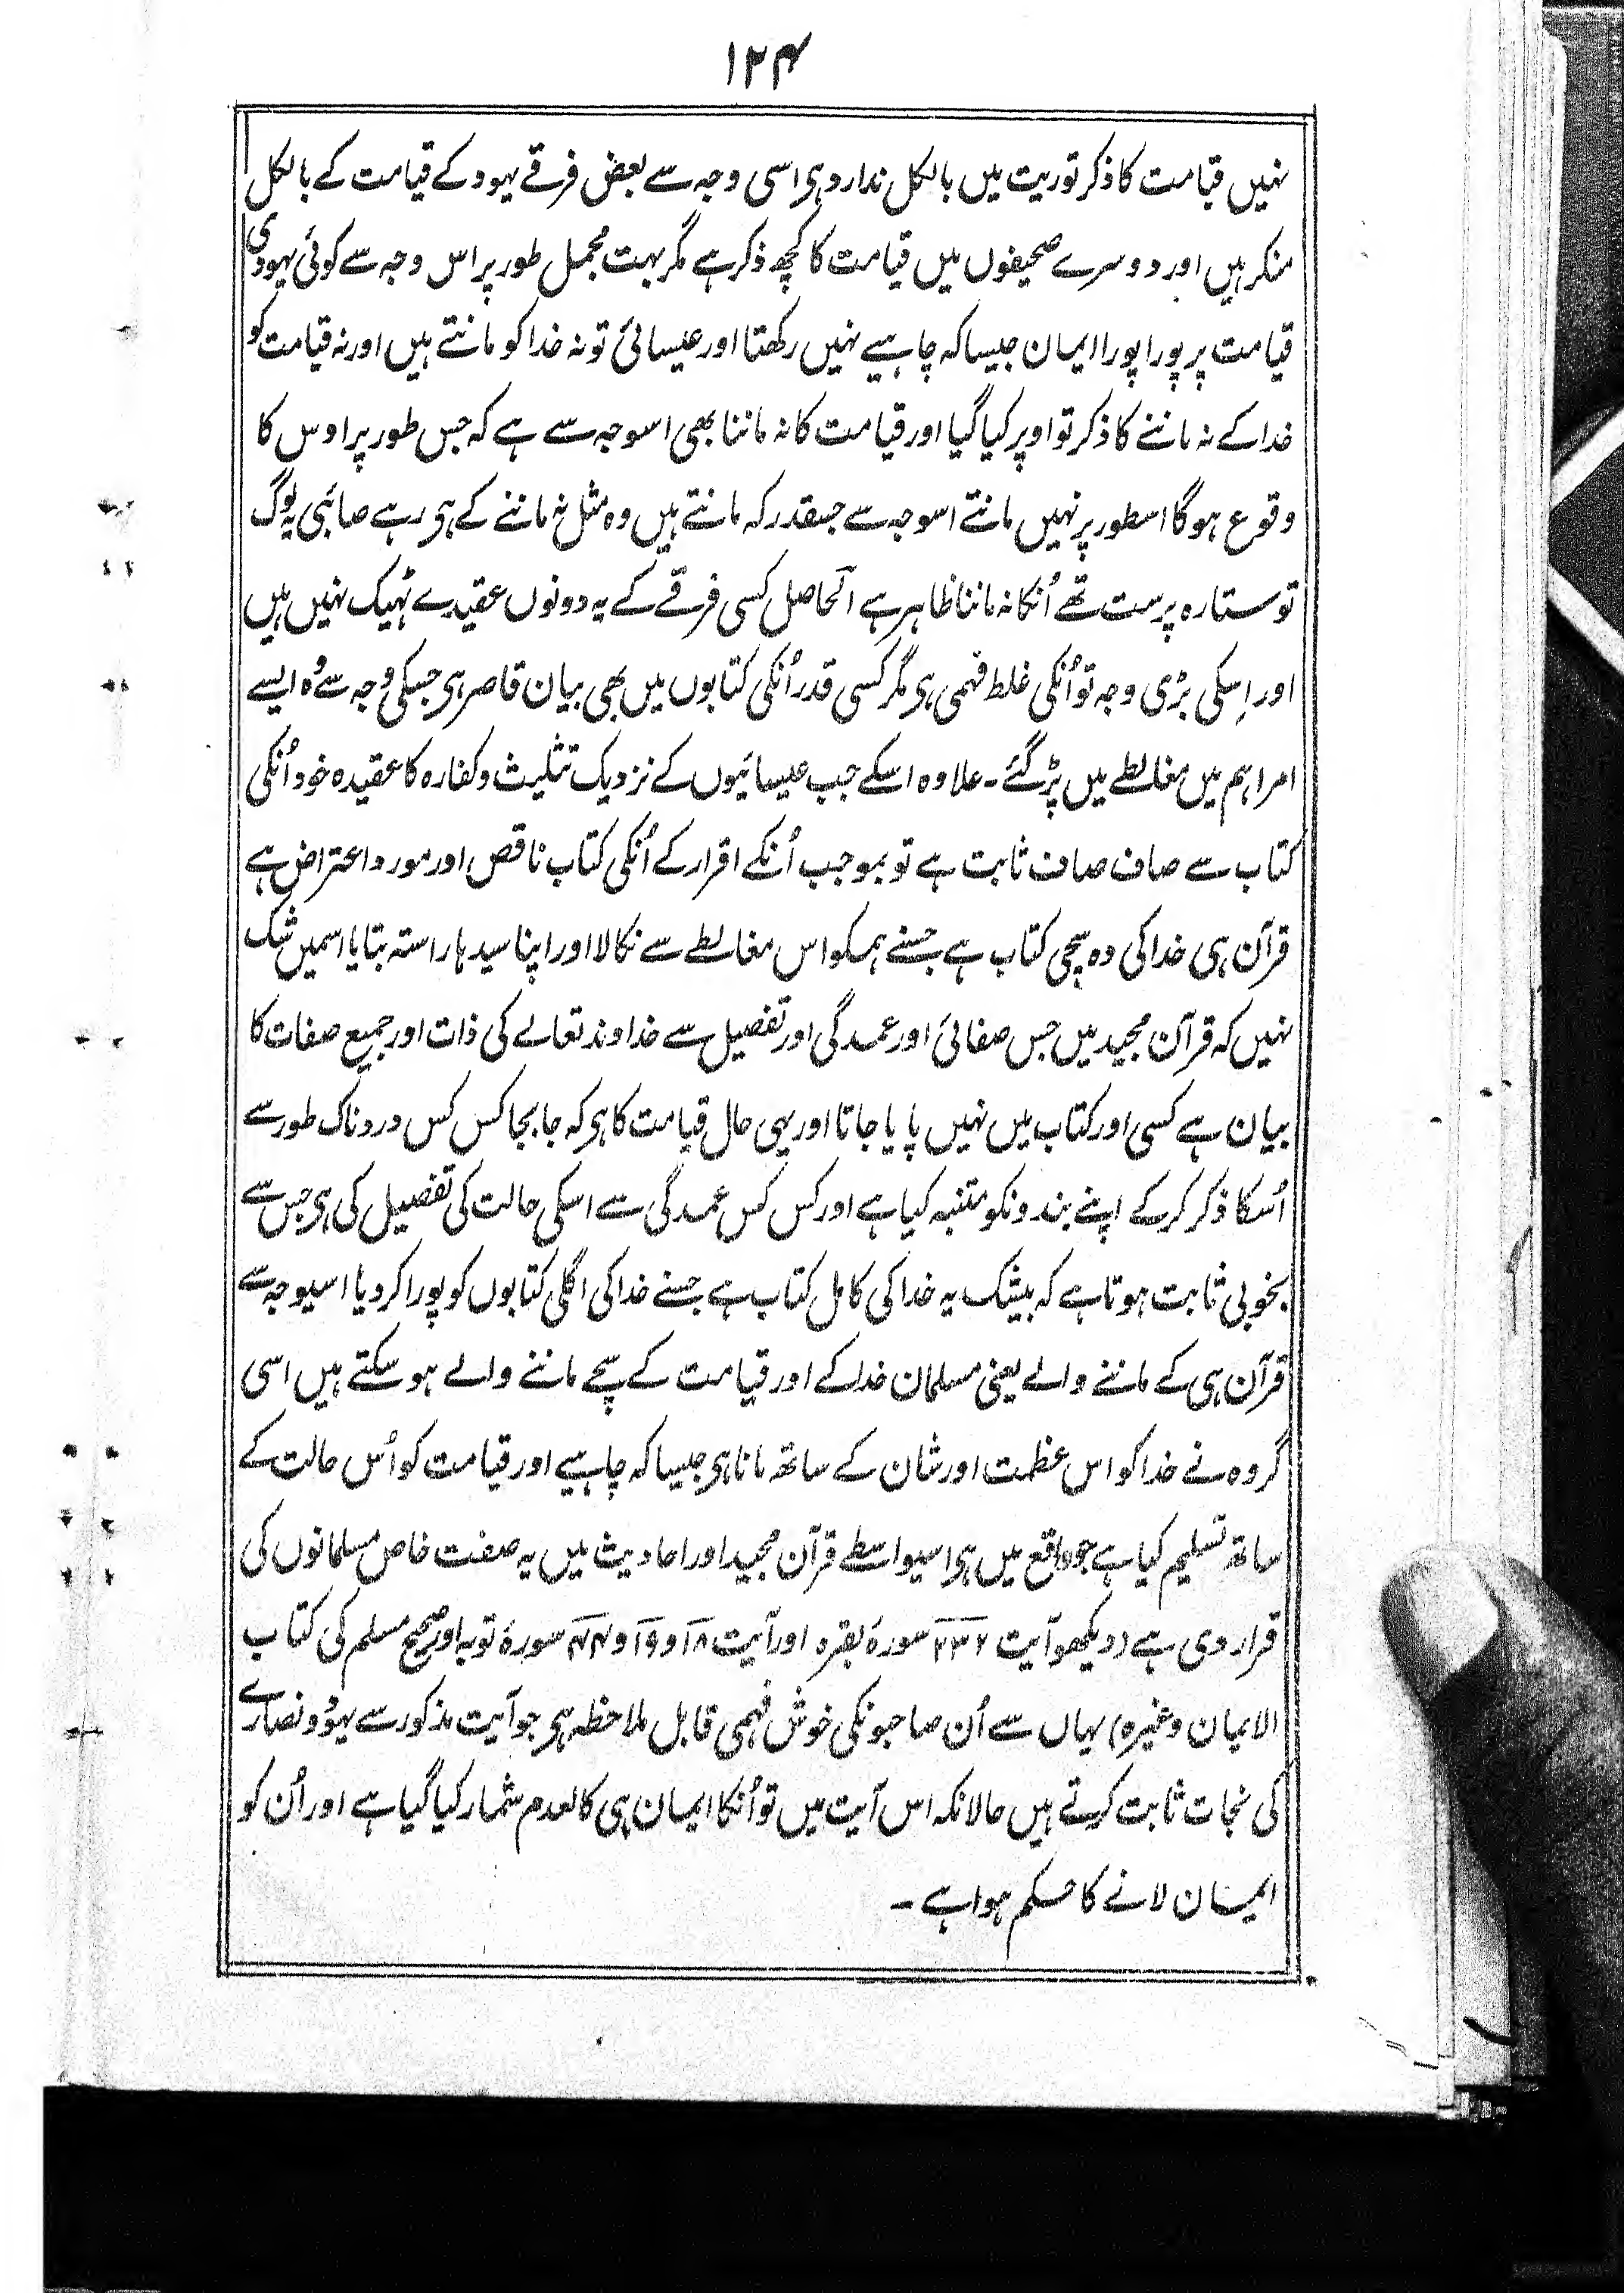 ۱۲۴
نہیں قیامت کا ذکر توریت میں بالکل ندارد ہی اسی وجہ سے بعض فرقے یہود کے قیامت کے بالکل
منکر ہیں اور دوسرے صحیفوں میں قیامت کا کچھ ذکر ہے مگر بہت مجمل طور پر اس وجہ سے کوئی یہودی
قیامت پر پورا پورا ایمان جیسا کہ چاہیے نہیں رکھتا اور عیسائی تو نہ خدا کو مانتے ہیں اور نہ قیامت کو
خدا کے نہ ماننے کا ذکر تو اوپر کیا گیا اور قیامت کا نہ ماننا بھی اسوجہ سے ہے کہ جس طور پر اوس کا
وقوع ہوگا اسطور پر نہیں مانتے اسوجہ سے جسقدر کہ مانتے ہیں وہ مثل نہ ماننے کے ہی رہے صائبی یہ لوگ
تو ستارہ پرست تھے اُنکا نہ ماننا ظاہر ہے الحاصل کسی فرقے کے یہ دونوں عقیدے ٹہیک نہیں ہیں
اور اِسکی بڑی وجہ تو اُنکی غلط فہمی ہی مگر کسی قدر اُنکی کتابوں میں بھی بیان قاصر ہی جسکی وجہ سے وُہ ایسے
امر اہم میں مغالطے میں پڑ گئے ۔ علاوہ اسکے جب عیسائیوں کے نزدیک تثلیث و کفارہ کا عقیدہ خود اُنکی
کتاب سے صاف صاف ثابت ہے تو بموجب اُنکے اقرار کے اُنکی کتاب ناقص اور مورد اعتراض ہے
قرآن ہی خدا کی وہ سچی کتاب ہے جسنے ہمکو اس مغالطے سے نکالا اور اپنا سیدہا راستہ بتایا اسمیں شک
نہیں کہ قرآن مجید میں جس صفائی اور عمدگی اور تفصیل سے خداوند تعالے کی ذات اور جمیع صفات کا
بیان ہے کسی اور کتاب میں نہیں پایا جاتا اور یہی حال قیامت کا ہی کہ جابجا کس کس دردناک طور سے
اُسکا ذکر کرکے اپنے بندونکو متنبہ کیا ہے اور کس کس عمدگی سے اسکی حالت کی تفصیل کی ہی جس سے
بخوبی ثابت ہوتا ہے کہ بیشک یہ خدا کی کامل کتاب ہے جسنے خدا کی اگلی کتابوں کو پورا کردیا اسیوجہ سے
قرآن ہی کے ماننے والے یعنی مسلمان خدا کے اور قیامت کے سچے ماننے والے ہوسکتے ہیں اسی
گروہ نے خدا کو اس عظمت اور شان کے ساتھ مانا ہی جیسا کہ چاہیے اور قیامت کو اُس حالت کے
ساتھ تسلیم کیا ہے جو واقع میں ہی اسیواسطے قرآن مجید اور احادیث میں یہ صفت خاص مسلمانوں کی
قرار دی ہے (دیکھو آیت سورۂ بقرہ اور آیت ۱۸ و ۱۹ و ۴۴ سورۂ توبہ اور صحیح مسلم کی کتاب
الایمان وغیرہ) یہاں سے اُن صاحبونکی خوش فہمی قابل ملاحظہ ہی جو آیت مذکور سے یہود و نصارے
کی نجات ثابت کرتے ہیں حالانکہ اس آیت میں تو اُنکا ایمان ہی کالعدم شمار کیا گیا ہے اور اُن کو
ایمان لانے کا حکم ہوا ہے ۔